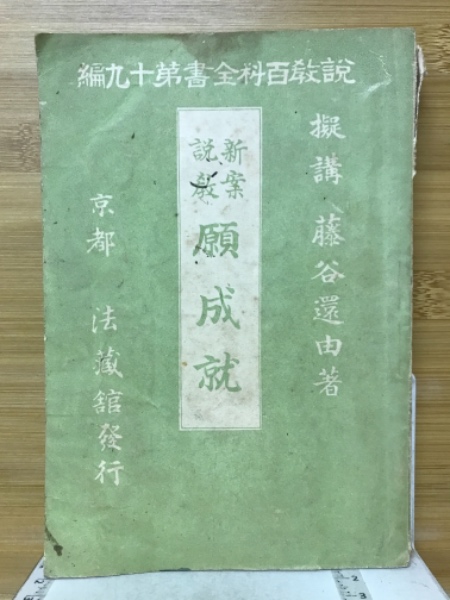 説教百科全書第十九編
擬講 藤谷還由著
新案
説教
願成就
京都 法藏舘發行